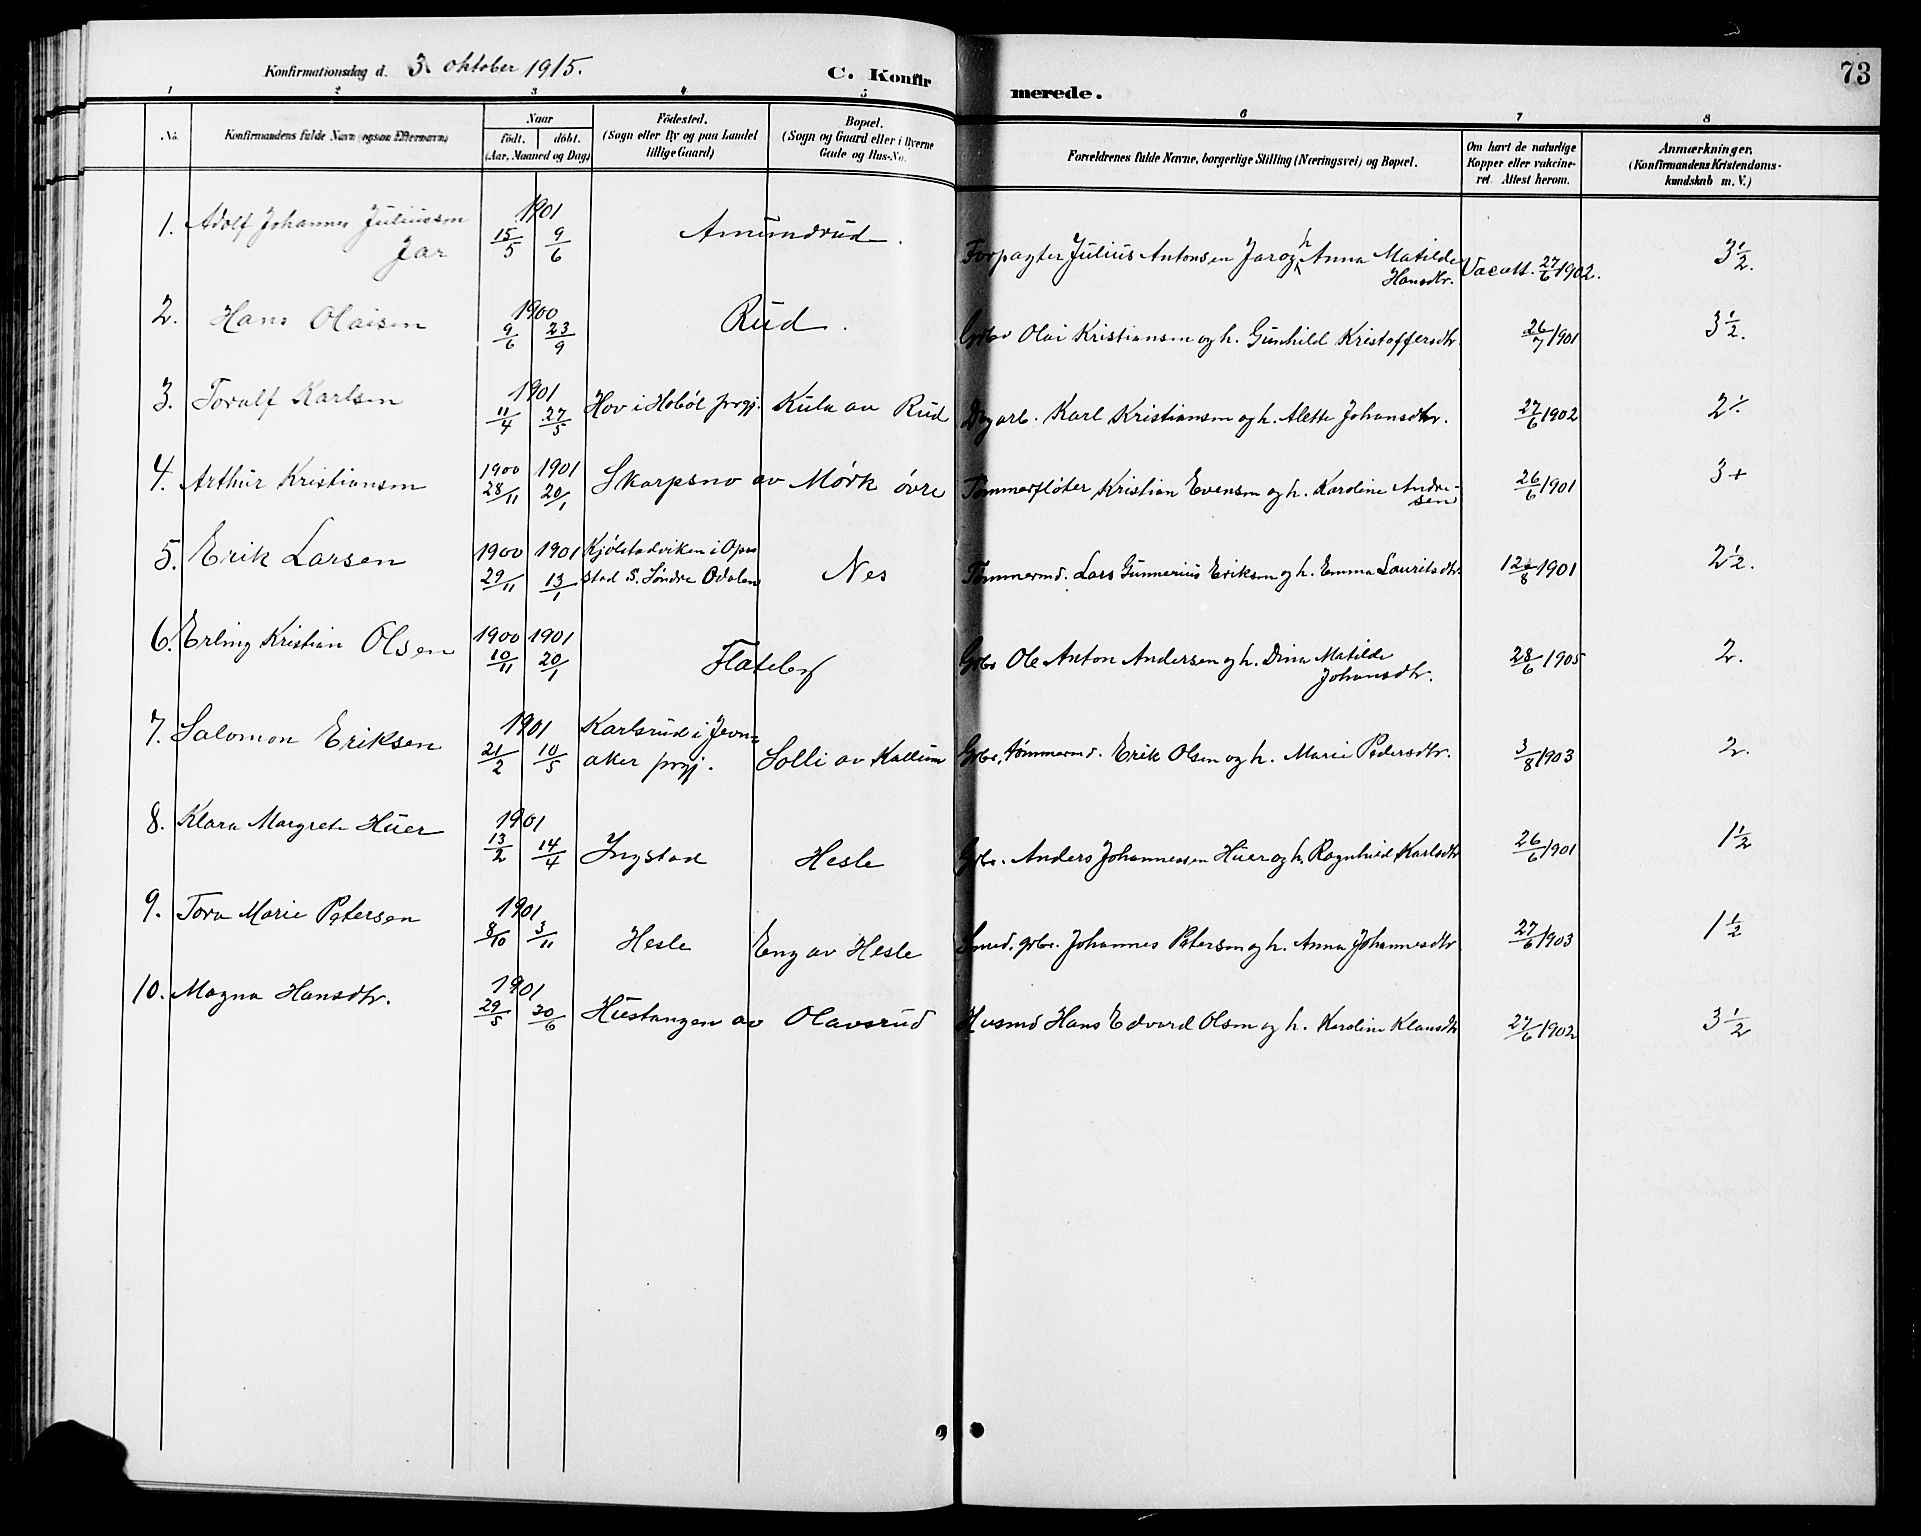 Konfirmationsdag d. 3. oktober 1915. C. Konfirmerede. 73
1 2 3 4 5 6 7 8
No.
Konfirmandens fulde Navn (ogsaa Efternavn)
Naar
født. døbt.
(Aar, Maaned og Dag)
Fødested.
(Sogn eller By og paa Landet
tillige Gaard)
Bopæl.
(Sogn og Gaard eller i Byerne
Gade og Hus-No.
Forældrenes fulde Navne, borgerlige Stilling (Næringsvei) og Bopæl.
Om havt de naturlige
Kopper eller vakcine-
ret. Attest herom.
Anmærkninger,
(Konfirmandens Kristendoms-
kundskab m. V.)
1. Adolf Johannes Juliussen Jar 1901 15/5 9/6 Amundrud. Forpagter Julius Antonsen Jar og h. Anna Matilde Hansdtr. Vacatt. 27/6 1902. 3 1/2.
2. Hans Olaisen 1900 9/6 23/9 Rud. Grbr Olai Kristiansen og h. Gunhild Kristoffersdtr. 26/7 1901 3 1/2.
3. Toralf Karlsen 1901 11/4 27/5 Hov i Hobøl prgj. Kula av Rud Dagarb. Karl Kristiansen og h. Alette Johansdtr. 27/6 1902 2 ÷
4. Arthur Kristiansen 1900 28/11 1901 20/1 Skarpsno av Mørk øvre Tømmerfløter Kristian Evensen og h. Karoline Andre-
sen 26/6 1901 3+
5. Erik Larsen 1900 29/11 1901 13/1 Kjølstadviken i
stad S. Søndre Odalen Nes Tømmermd. Lars Gunnerius Eriksen og h. Emma Lauritsdtr. 12/8 1901 2 1/2.
6. Erling Kristian Olsen 1900 10/11 1901 20/1 Flateby Grbr Ole Anton Andersen og h. Dina Matilde
Johansdtr. 28/6 1905 2.
7. Salomon Eriksen 1901 21/2 10/5 Karlsrud i Jevn=
aker prgj. Solli av Kallum Grbr, tømmermd. Erik Olsen og h. Marie Pedersdtr. 3/8 1903 2.
8. Klara Margrete Huer 1901 13/2 14/4 Ingstad Hesle Grbr. Anders Johannessen Huer og h. Ragnhild Karlsdtr 26/6 1901 1 1/2
9. Tora Marie Petersen 1901 8/10 3/11 Hesle Eng av Hesle Smed, grbr. Johannes Petersen og h. Anna Johannesdtr 27/6 1903 1 1/2
10. Magna Hansdtr. 1901 29/5 30/6 Hustangen av Olavsrud Husmd Hans Edvard Olsen og h. Karoline Klausdtr 27/6 1902 3 1/2